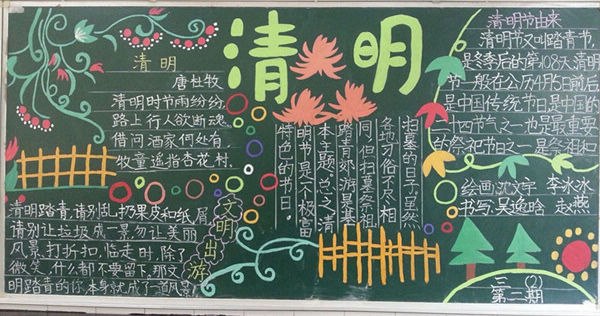 清明
清明
唐杜牧
清明时节雨纷纷,
路上行人欲断魂。
借问酒家何处有,
牧童遥指杏花村.
清明踏青,请别乱扔果皮和纸屑
请别让垃圾成一景勿让美丽
风景打折扣,临走时,除了
微笑,什么都不要留下,那文
明踏青的你,本身就成了一道风景
文明出游
清明节由来
清明节又叫踏青节,
是冬季后的第108天,清明
节一般在公历4月5日前后
是中国传统节日是中国的
二十四节气之一也是最重要
的祭祀节日之一,是祭祖和
扫墓的日子,虽然
各地习俗不尽相
同,但扫墓祭祖
踏青郊游是基
本主题,总之,清
明节是一个极富
特色的节日。
绘画:沈文宇 李冰冰
书写:吴逸晗 赵燕
三(2)
第二期